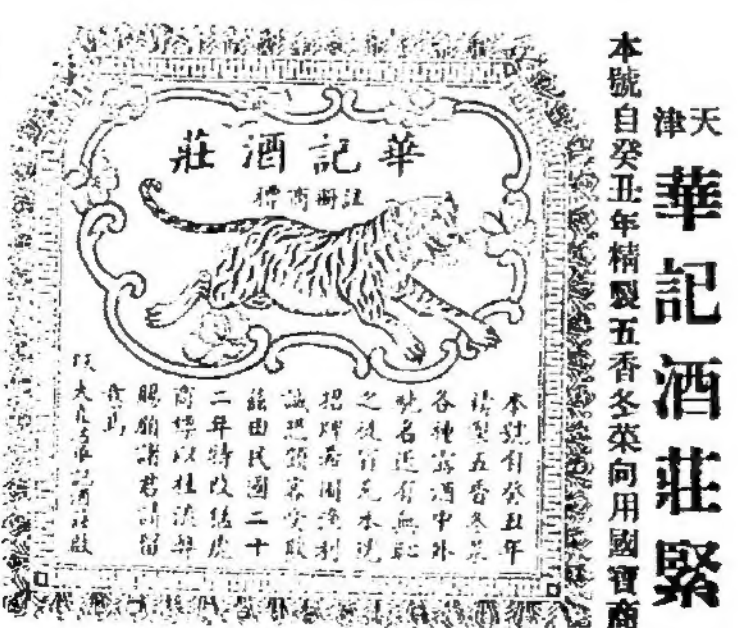 天津
華記酒莊緊
本號自癸丑年精製五香冬菜向用國寶商
華記酒莊
註冊商標
本號自癸丑年
精製五香冬菜
各種露酒中外
馳名近有無恥
之徒冒充本號
招牌希圖漁利
誠恐顧客受欺
茲由民國二十
二年特改猛虎
商標以杜流弊
賜顧諸君請留
意焉
記酒莊啟